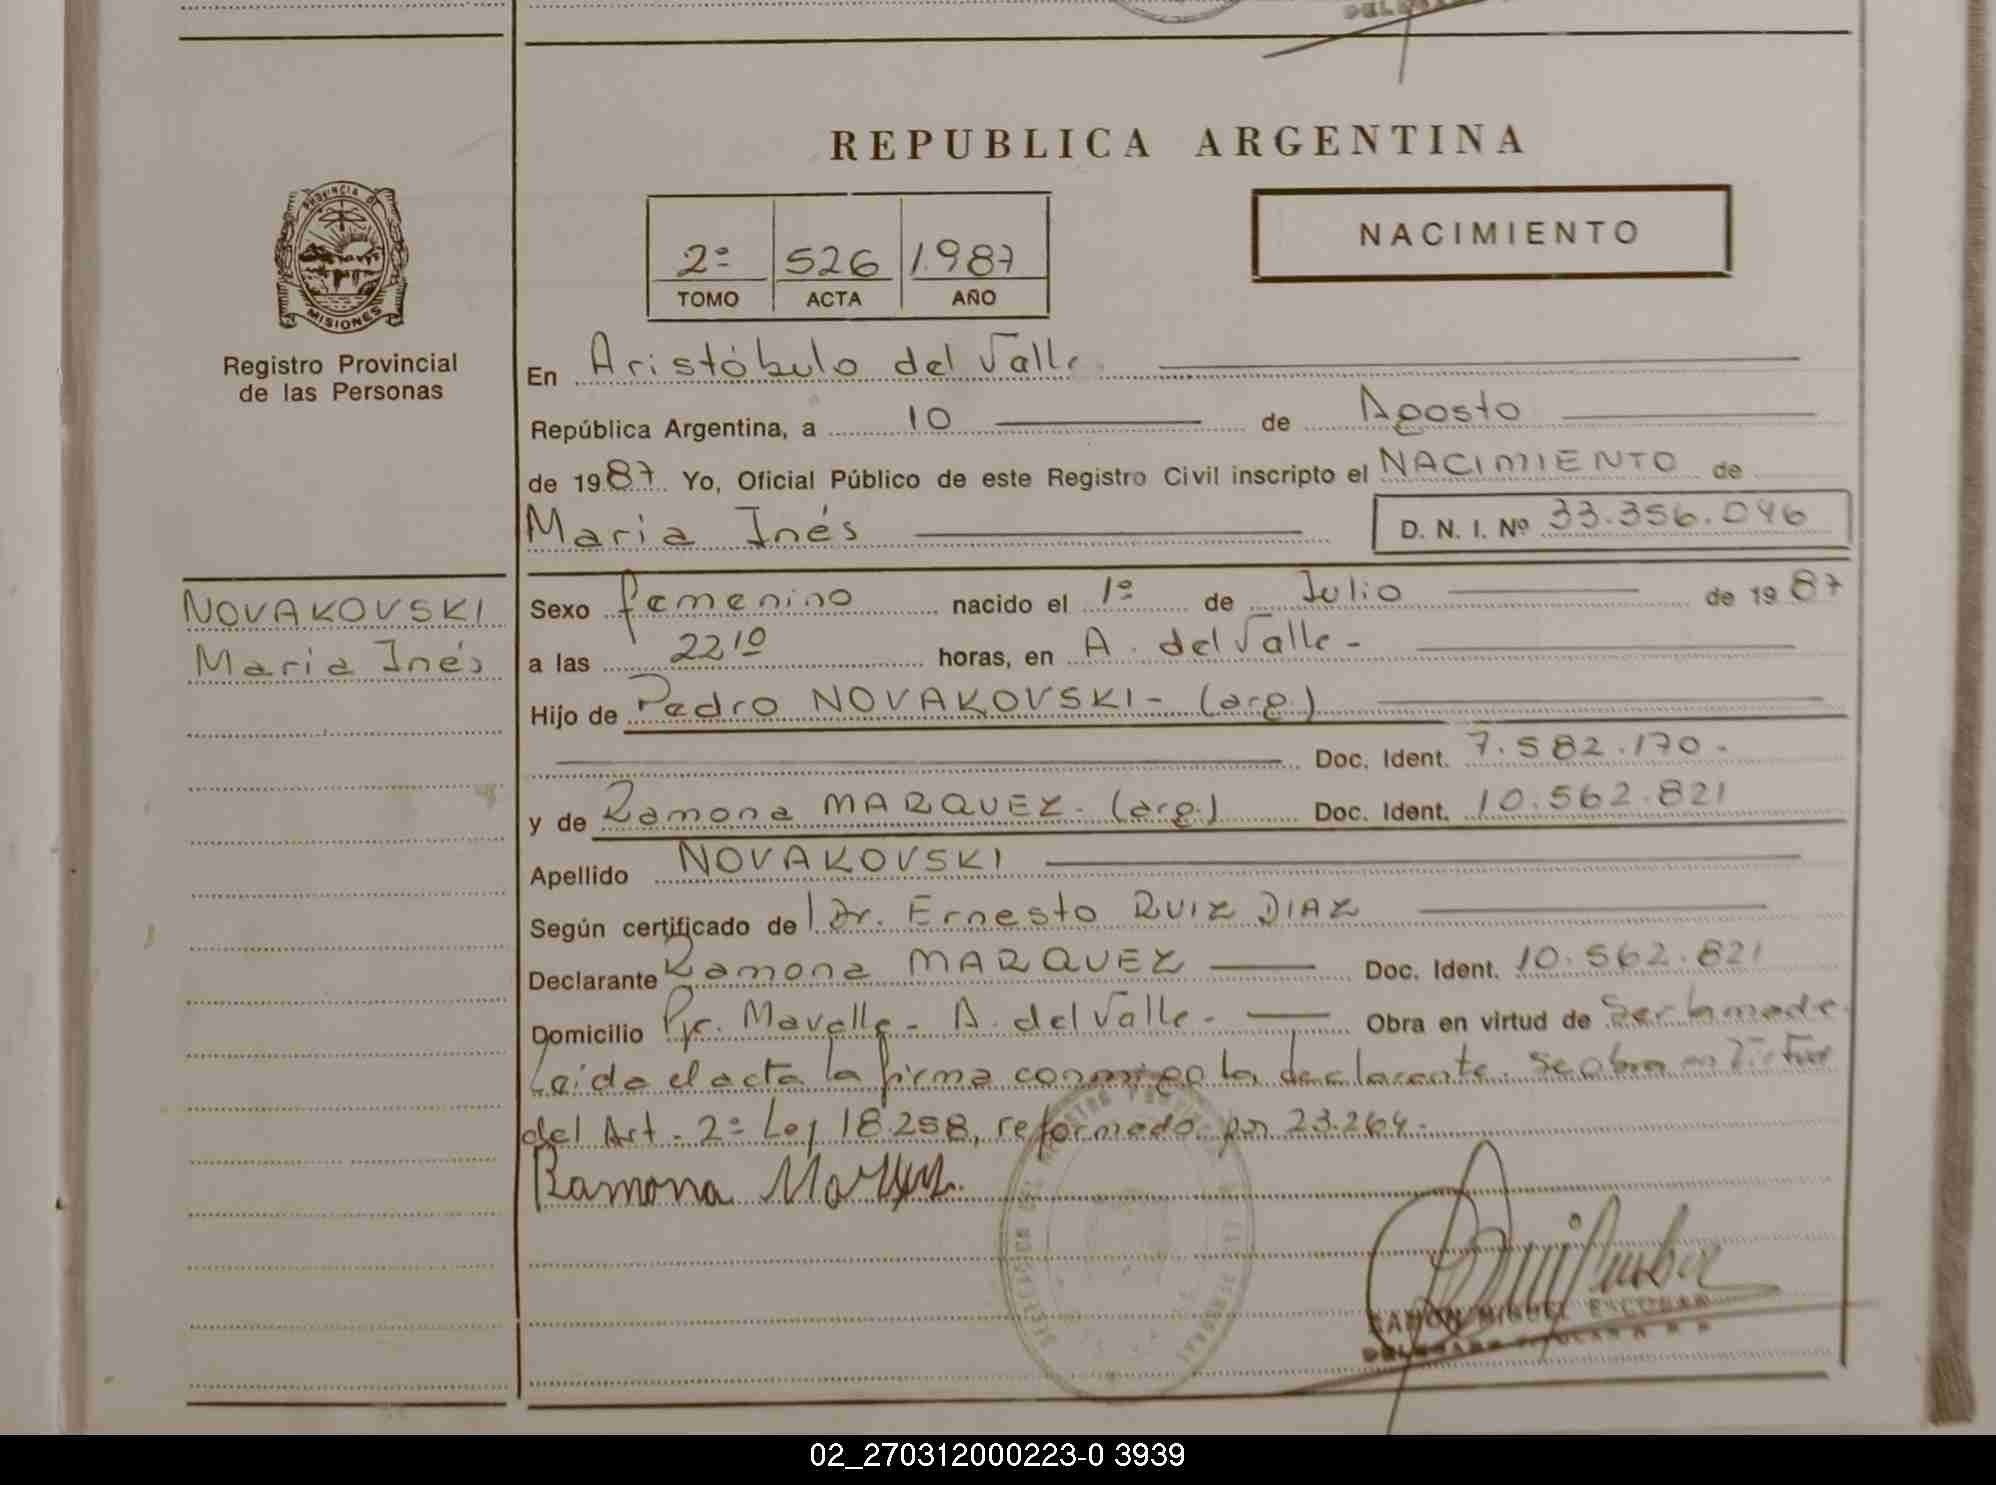 REPUBLICA ARGENTINA
PROVINCIA D
MISIONES
Registro Provincial
de las Personas
2º 526 1.987
TOMO ACTA AÑO
NACIMIENTO
En Aristóbulo del Valle
República Argentina, a 10 de Agosto
de 1987 Yo, Oficial Público de este Registro Civil inscripto el NACIMIENTO de
Maria Inés D. N. I. Nº 33.356.046
NOVAKOVSKI
Maria Inés
Sexo femenino nacido el 1º de Julio de 1987
a las 22 10 horas, en A. del Valle -
Hijo de Pedro NOVAKOVSKI - (arg.)
Doc. Ident. 7.582.170.
y de Ramona MARQUEZ - (arg.) Doc. Ident. 10.562.821
Apellido NOVAKOVSKI
Según certificado de Dr. Ernesto RUIZ DIAZ
Declarante Ramona MARQUEZ Doc. Ident. 10.562.821
Domicilio A. del Valle - Obra en virtud de ser la madre.
Leida el acta la firma conmigo la declarante. Se obra en
del Art. 2º Ley 18.258, reformado por 23.264.
Ramona
RAMON MIGUEL ESCOBAR
02_270312000223-0 3939